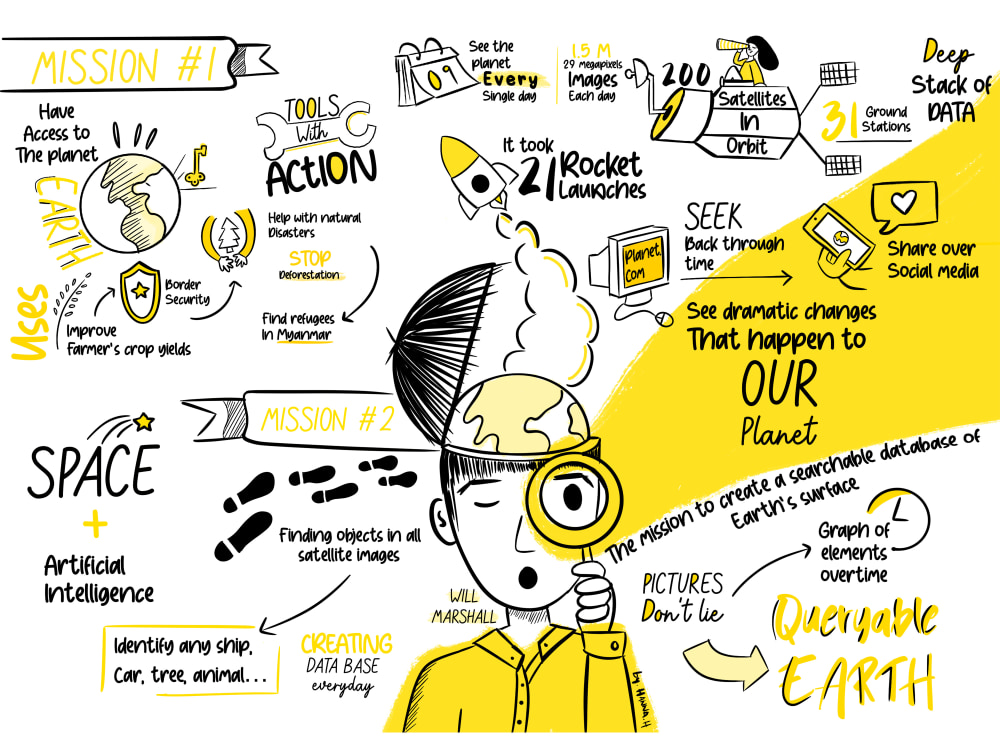 MISSION #1
Have
Access to
The planet
EARTH
Uses
Improve
Farmer's crop yields
Border
Security
TOOLS
With
ACTION
Help with natural
Disasters
STOP
Deforestation
Find refugees
In Myanmar
09
See the
planet
Every
Single day
1.5 M
29 Megapixels
Images
Each day
200
Satellites
In
Orbit
31 Ground
Stations
Deep
Stack of
DATA
It took
21 Rocket
Launches
Planet.
Com
SEEK
Back through
time
Share over
Social media
See dramatic changes
That happen to
OUR
Planet
MISSION #2
SPACE
+
Artificial
Intelligence
Finding objects in all
satellite images
Identify any ship,
Car, tree, animal...
CREATING
DATA BASE
everyday
WILL
MARSHALL
The mission to create a searchable database of
Earth's surface
PICTURES
Don't lie
Graph of
elements
overtime
Queryable
EARTH
by Hanna.H